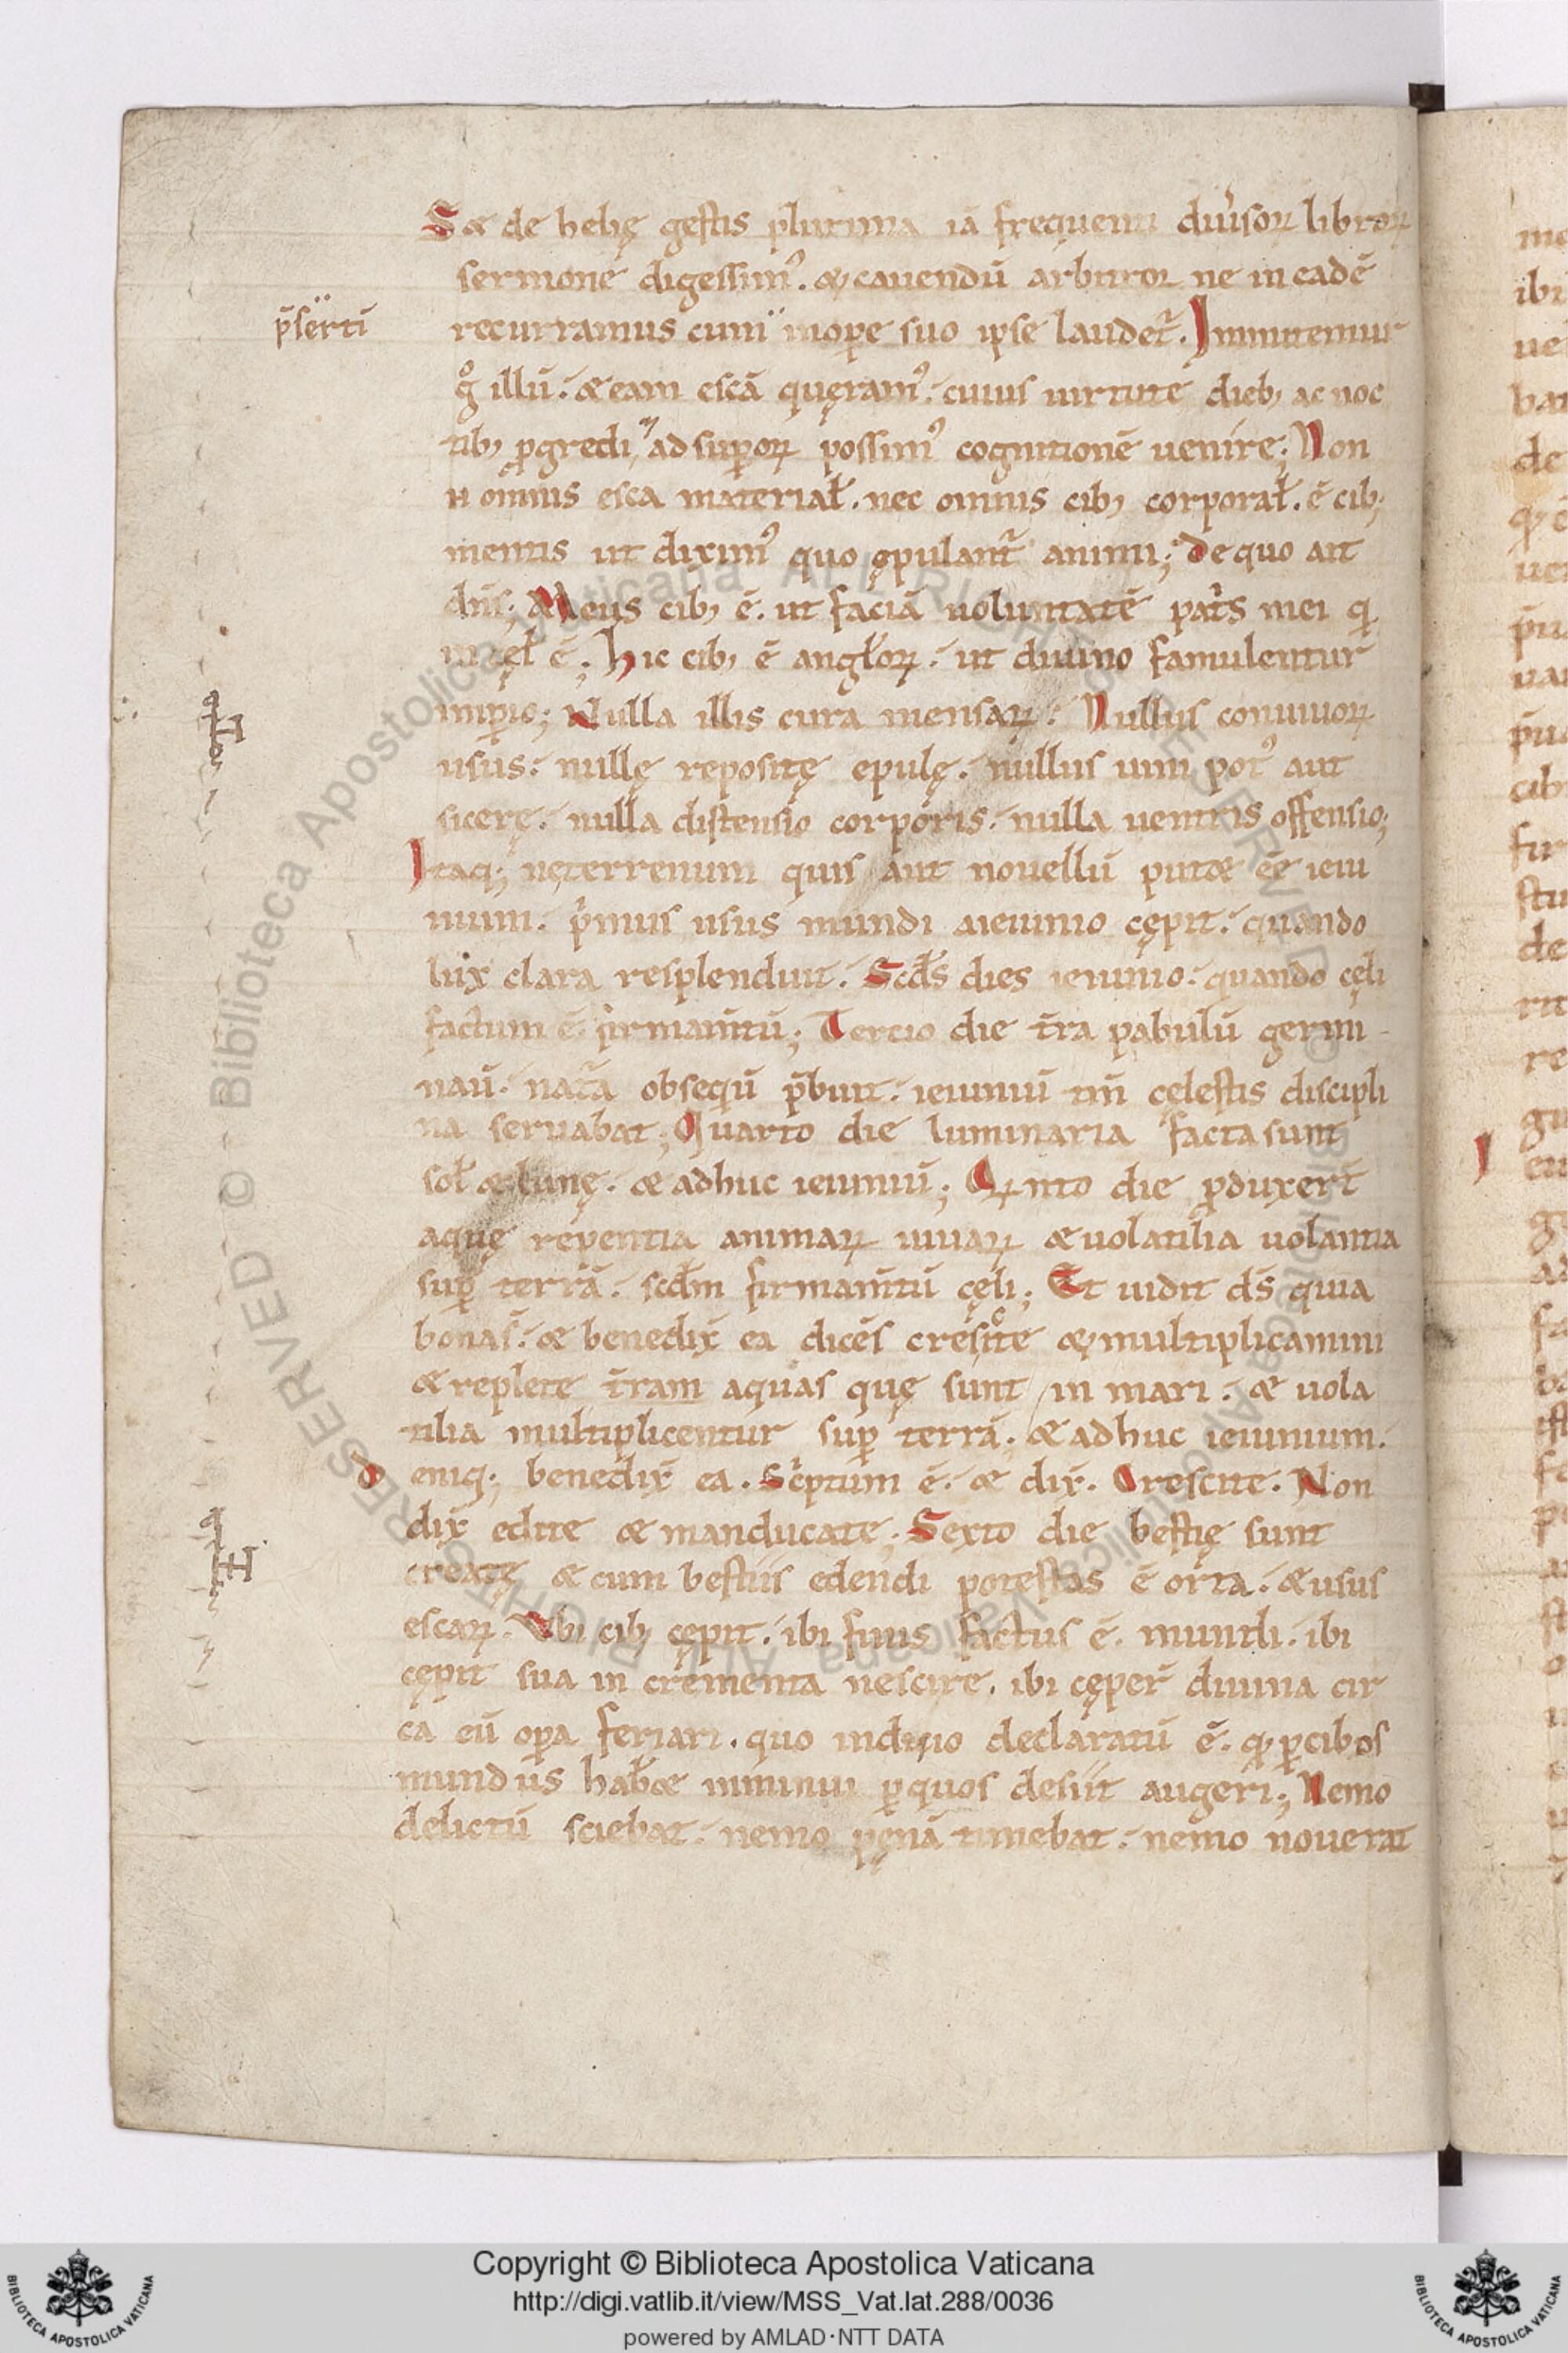 Sed de helię gestis plurima iā frequenti diuŭsoꝝ libroꝝ
sermone digessim᾽. & cauendū arbitror ne in eadē
p̄serti recurramus cum inoꝑe suo ipse laudet᷑. Immitemur
gͦ illū. & eam escā quęram᾽. cuius uirtute dieb; ac noc
tib; ꝓgredi, ad suꝑoꝝ possim᾽ cognitionē uenire; Non
n̄ omnis esca material̄. nec omnis cib; corporal̄. ē cib;
mentis ut dixim᾽ quo ępulant᷑ animi; de quo ait
dn̄s; Meus cib; ē. ut faciā uoluntatē patr̄s mei q
in cęl̄ ē; Hic cib; ē angl̄oꝝ. ut diuino famulentur
imꝑio; Nulla illis cura mensaꝝ. Nullus conuiuioꝝ
usus. nullę repositę epulę. nullus uini pot᾽ aut
sicerę. nulla distensio corporis. nulla uentris offensio;
Itaq; nęterrenum quis aut nouellū putet ēē ieiu
nium. p̄mus usus mundi aieiunio cępit. quando
lux clara resplenduit. Scd̄s dies ieiunio. quando cęli
factum ē firmam̄tū; Tercio die t̄ra pabulū germi-
nau̅. nat̄a obseqū p̄buit. ieiuniū tn̄ cęlestis discipli
na seruabat; Quarto die luminaria facta sunt
sol̄ & lunę. & adhuc ieiuniū; Qꝝnto die ꝓduxer̄t
aquę repentia animaꝝ uiuaꝝ & uolatilia uolantia
suꝑ terrā. scd̄m firmam̄tū cęli; Et uidit ds̄ quia
bonas. & benedix̄ ea dicēs cresite & multiplicamini
& replete t̄ram aquas quę sunt in mari. & uola
tilia multiplicentur suꝑ terrā. & adhuc ieiunium.
deniq; benedix̄ ea. Sc̄ptum ē. & dix̄. Crescite. Non
dix̄ edite & manducate; Sexto die bestię sunt
creatę & cum bestiis edendi potestas ē orta. & usus
escaꝝ. Vbi cib; cępit. ibi finis factus ē. mundi. ibi
cępit sua in crementa nescire. ibi cęper̄ diuina cir
ca eū oꝑa feriari. quo indicio declaratū ē. qđ ꝑcibos
mundus hab̄& minui ꝑquos desiit augeri; Nemo
delictū sciebat. nemo pęnā timebat. nemo nouerat
Copyright © Biblioteca Apostolica Vaticana
http://digi.vatlib.it/view/MSS_Vat.lat.288/0036
powered by AMLAD·NTT DATA
BIBLIOTECA APOSTOLICA VATICANA
BIBLIOTECA APOSTOLICA VATICANA